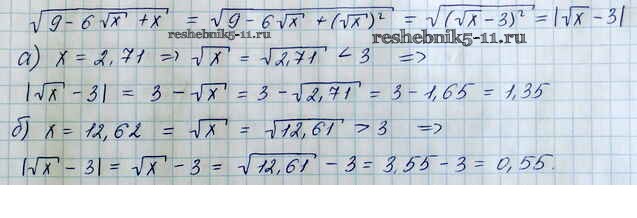 √(9 - 6√x + x) = √(9 - 6√x + (√x)²) = √((√x - 3)²) = |√x - 3|
www.reshebnik5-11.ru www.reshebnik5-11.ru
а) x = 2,71 => √x = √2,71 < 3 =>
|√x - 3| = 3 - √x = 3 - √2,71 = 3 - 1,65 = 1,35
б) x = 12,62 = √x = √12,61 > 3 =>
|√x - 3| = √x - 3 = √12,61 - 3 = 3,55 - 3 = 0,55.